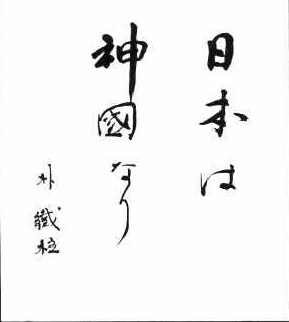 日本は
神國なり
朴 鐵柱